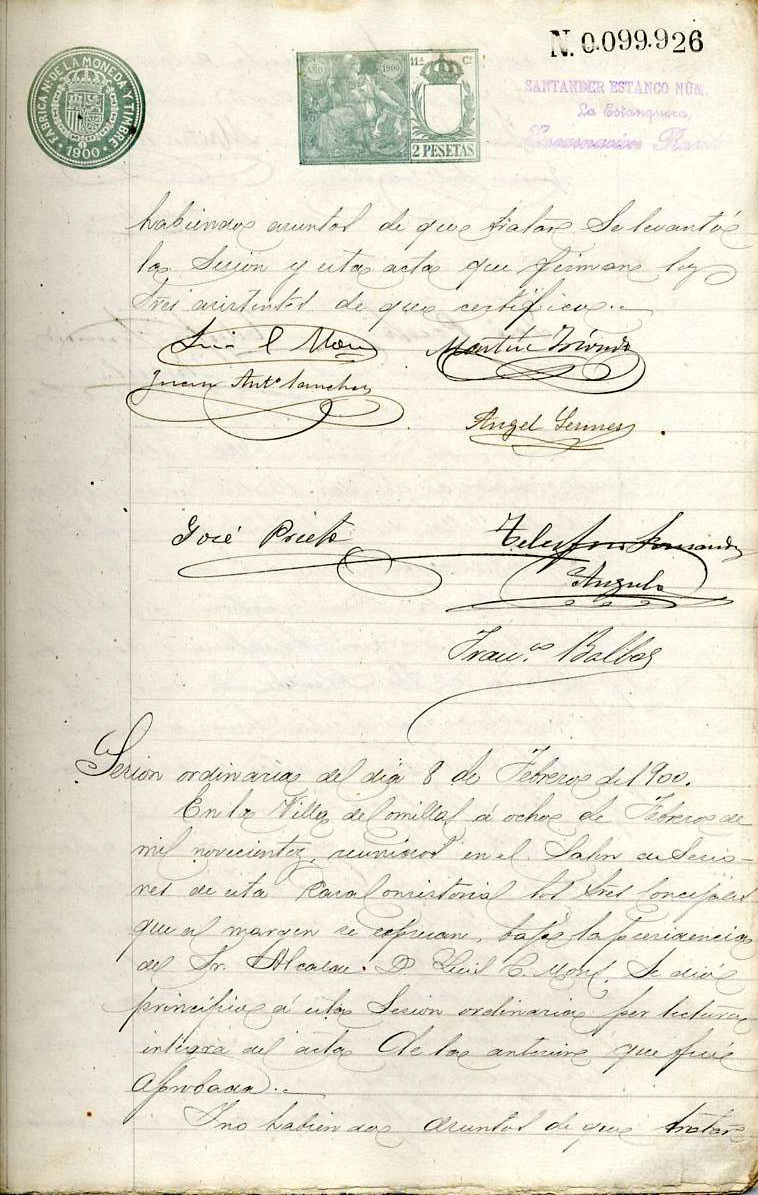 N. 0.099.926
FABRICA Nl. DE LA MONEDA Y TIMBRE
1900
AÑO 1900
11ª Cª
2 PESETAS
SANTANDER ESTANCO NÚM.
La Estanquera,
habiendo asuntos de que tratar se levantó
la Sesión y esta acta que firman los
Tres asistentes de que certifico.
Martin
Juan Antº Sanchez
Angel
José Prieto
Angulo
Franco. Balbas
Sesion ordinaria del dia 8 de Febrero de 1900.
En la Villa de Comillas á ocho de Febrero de
mil novecientos, reunidos en el Salon de Sesio-
nes de esta Casa Consistorial los Sres Concejales
que al margen se espresan, bajo la presidencia
del Sr. Alcalde. D Luis C. Mons. Se dió
principio á esta Sesion ordinaria por lectura
integra del acta de la anterior que fué
aprobada.
I no habiendo asuntos de que tratar